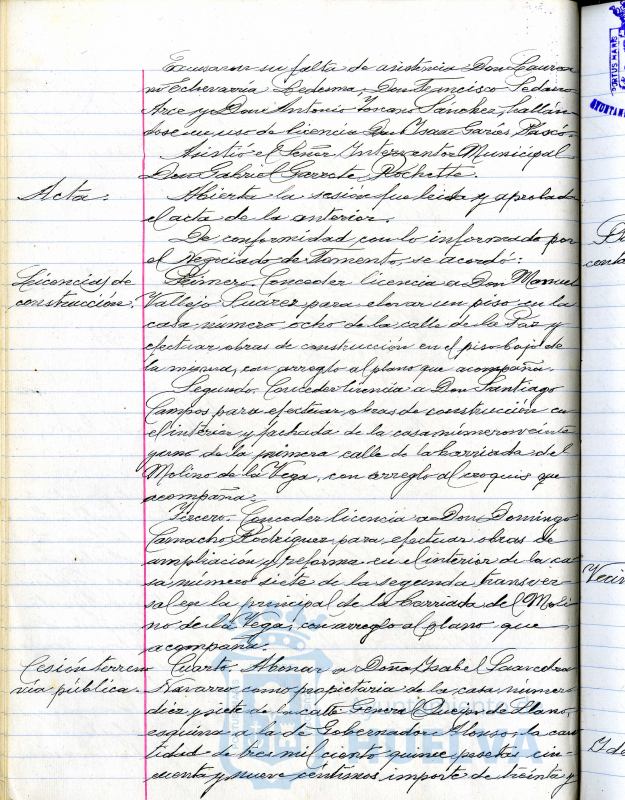 Excusaron su falta de asistencia Don Laurea-
no Echevarría Ledesma, Don Francisco Sedano
Arce y Don Antonio Toscano Sánchez, hallán-
dose en uso de licencia Don Isaac Garás Blasco.
Asistió el Señor Interventor Municipal
Don Gabriel Garrote Rochette.
Acta:
Abierta la sesión fue leida y aprobada
el acta de la anterior.
De conformidad con lo informado por
el Negociado de Fomento, se acordó:
Licencias de
construcción.
Primero. Conceder licencia a Don Manuel
Vallejo Suárez para elevar un piso en la
casa número ocho de la calle de la Paz y
efectuar obras de construcción en el piso bajo de
la misma, con arreglo al plano que acompaña.
Segundo. Conceder licencia a Don Santiago
Campos para efectuar obras de construcción en
el interior y fachada de la casa número veinte
y uno de la primera calle de la barriada del
Molino de la Vega, con arreglo al croquis que
acompaña.
Tercero. Conceder licencia a Don Domingo
Camacho Rodríguez para efectuar obras de
ampliación y reforma en el interior de la ca-
sa número siete de la segunda transver-
sal en la principal de la barriada del Moli-
no de la Vega, con arreglo al plano que
acompaña.
Cesión terreno
vía pública.
Cuarto. Abonar a Doña Ysabel Saavedra
Navarro como propietaria de la casa número
diez y siete de la calle General Queipo de Llano,
esquina a la de Gobernador Alonso, la can-
tidad de tres mil ciento quince pesetas cin-
cuenta y nueve céntimos importe de treinta y
Ayuntamiento
HUELVA
PORTUS MARIS